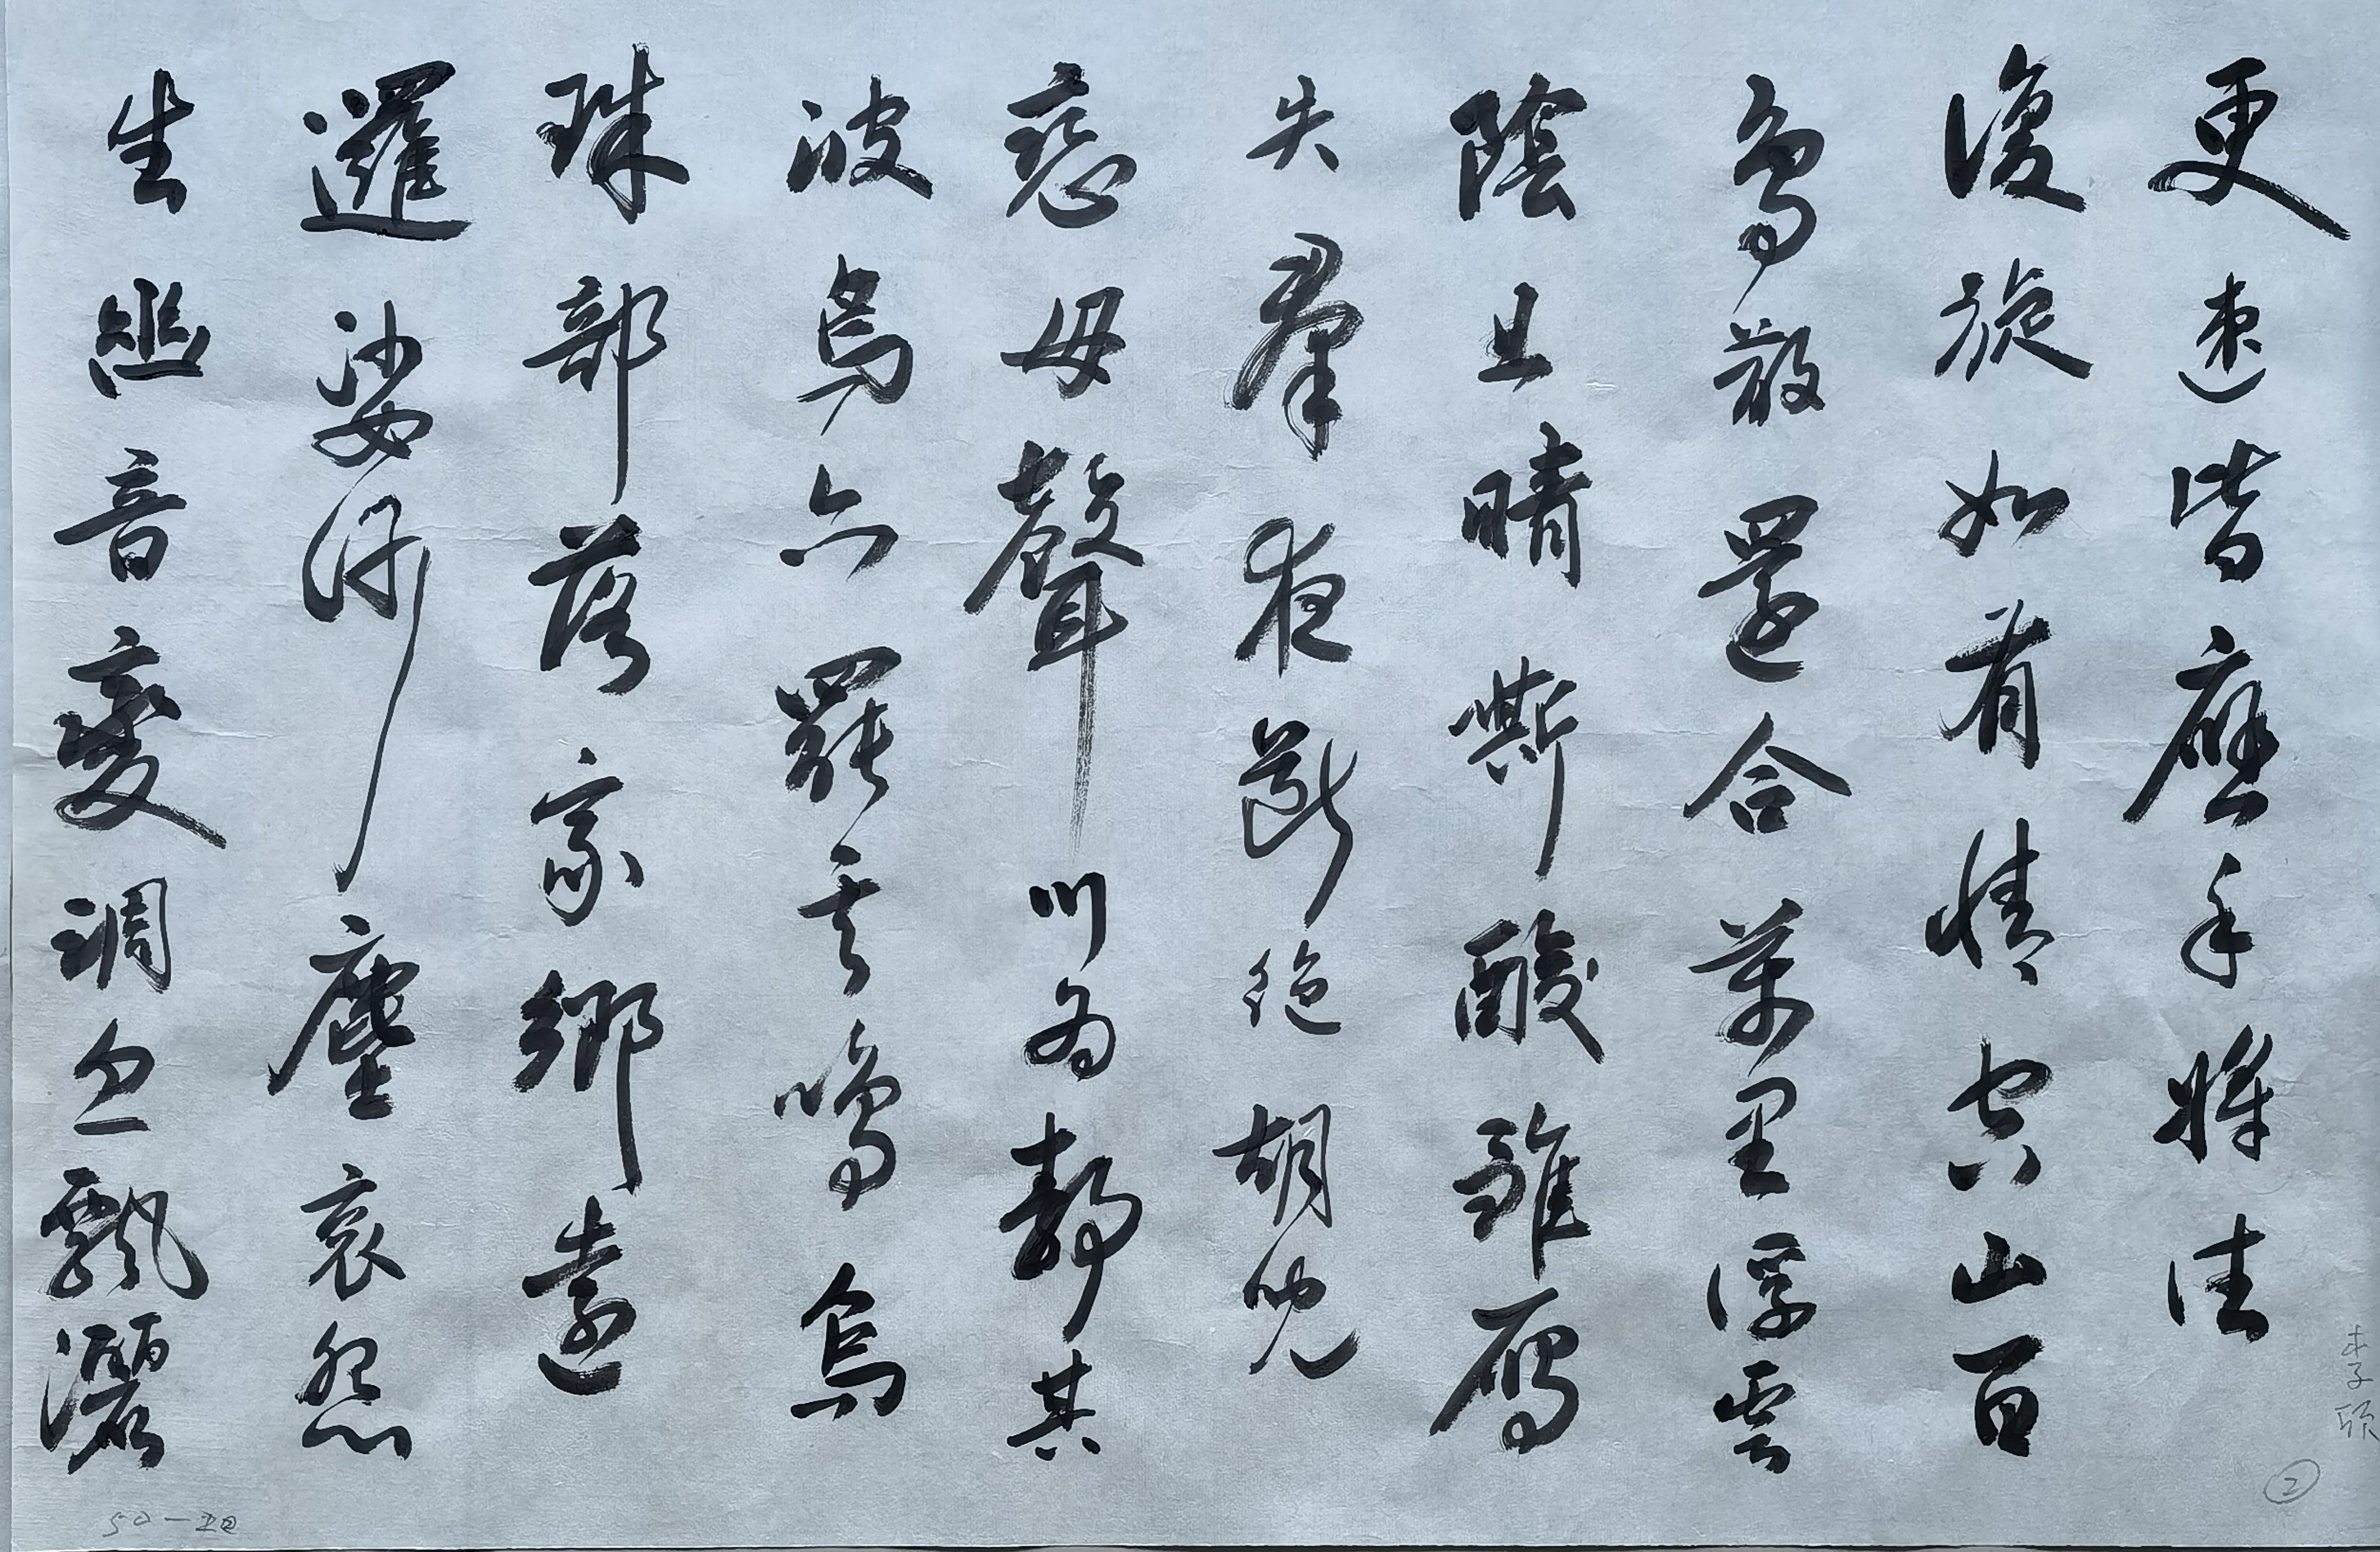 更速皆應手將往
復旋如有情空山百
鳥散還合萬里浮雲
陰且晴嘶酸雛雁
失羣夜斷絕胡兒
戀母聲川為靜其
波鳥亦罷其鳴烏
珠部落家鄉遠
邏娑沙塵哀怨
生幽音變調忽飄灑
李頎
②